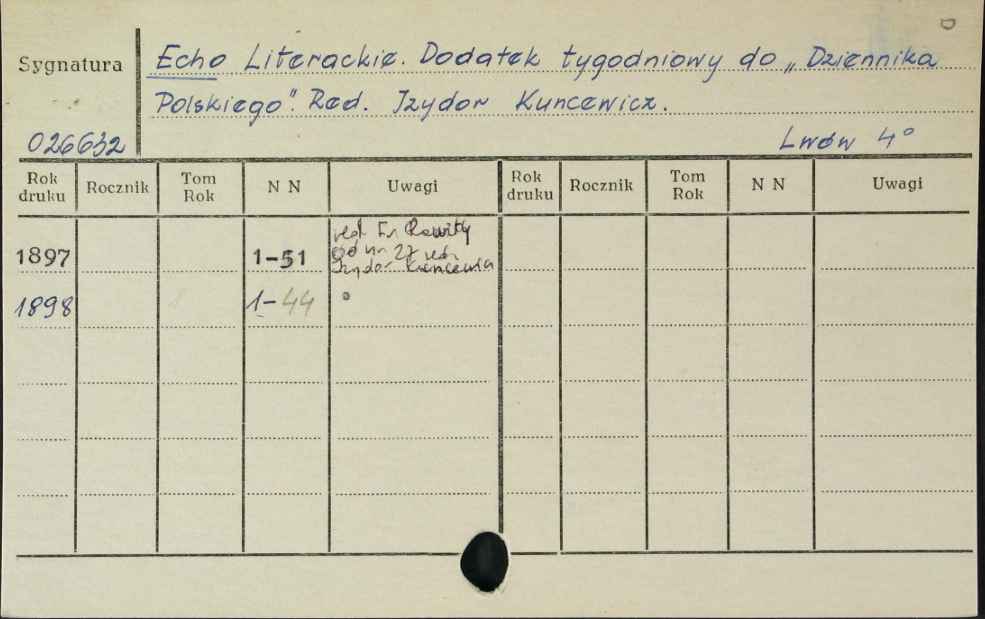 Sygnatura
Echo Literackie. Dodatek tygodniowy do „Dziennika
Polskiego". Red. Izydor Kuncewicz.
026632
Lwów 4°
Rok druku Rocznik Tom Rok N N Uwagi Rok druku Rocznik Tom Rok N N Uwagi
red Fr Rawity
1897 1-51 od nr 27 red.
Izydor Kuncewicz
1898 1-44